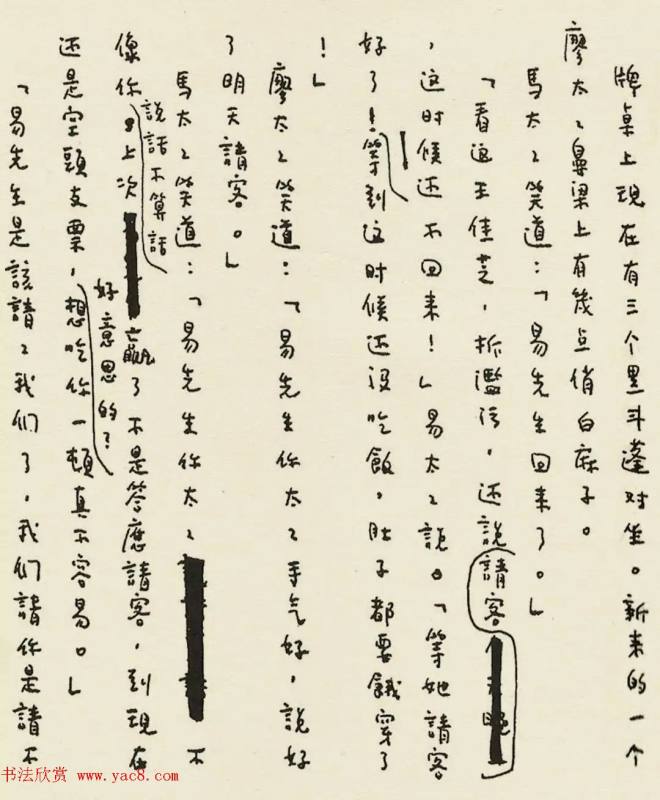 牌桌上現在有三个黑斗蓬对坐。新来的一个
廖太々鼻梁上有幾点俏白麻子。
馬太々笑道:「易先生回来了。」
「看这王佳芝,拆濫污,还説請客
,这时候还不回来!」易太々説。「等她請客
好了!等到这时候还没吃飯,肚子都要餓穿了
!」
廖太々笑道:「易先生你太々手气好,説好
了明天請客。」
馬太々笑道:「易先生你太々不
説話不算話
像你上次贏了不是答應請客,到現在
好意思的?
还是空頭支票,想吃你一頓真不容易。」
「易先生是該請々我们了,我们請你是請不
书法欣赏 www.yac8.com